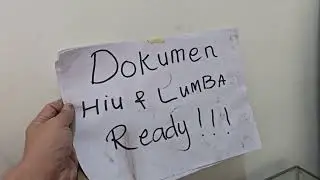 Dokumen
Hiu & LumBA
Ready!!!